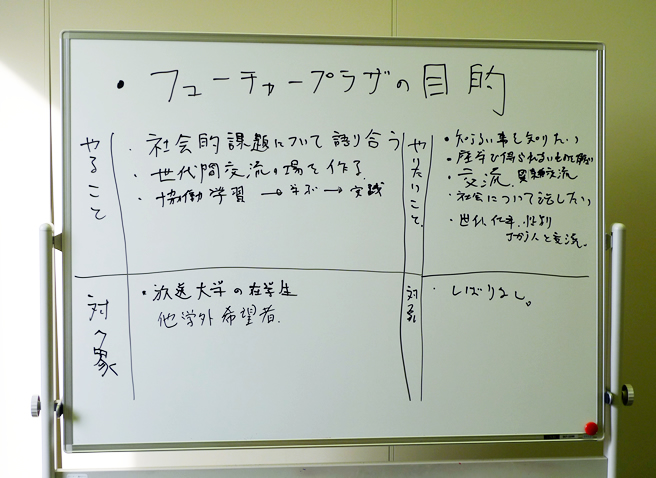 ・フューチャープラザの目的
やること
・社会的課題について語り合う
・世代間交流の場を作る
・協働学習 → 学び → 実践
やりたいこと
・知らない事を知りたい
・座学で得られないものを
・交流、異業種交流
・社会について話したい
・世代、仕事、性別
ちがう人と交流。
対象
・放送大学の在学生
他学外希望者.
対象
・しばりなし。